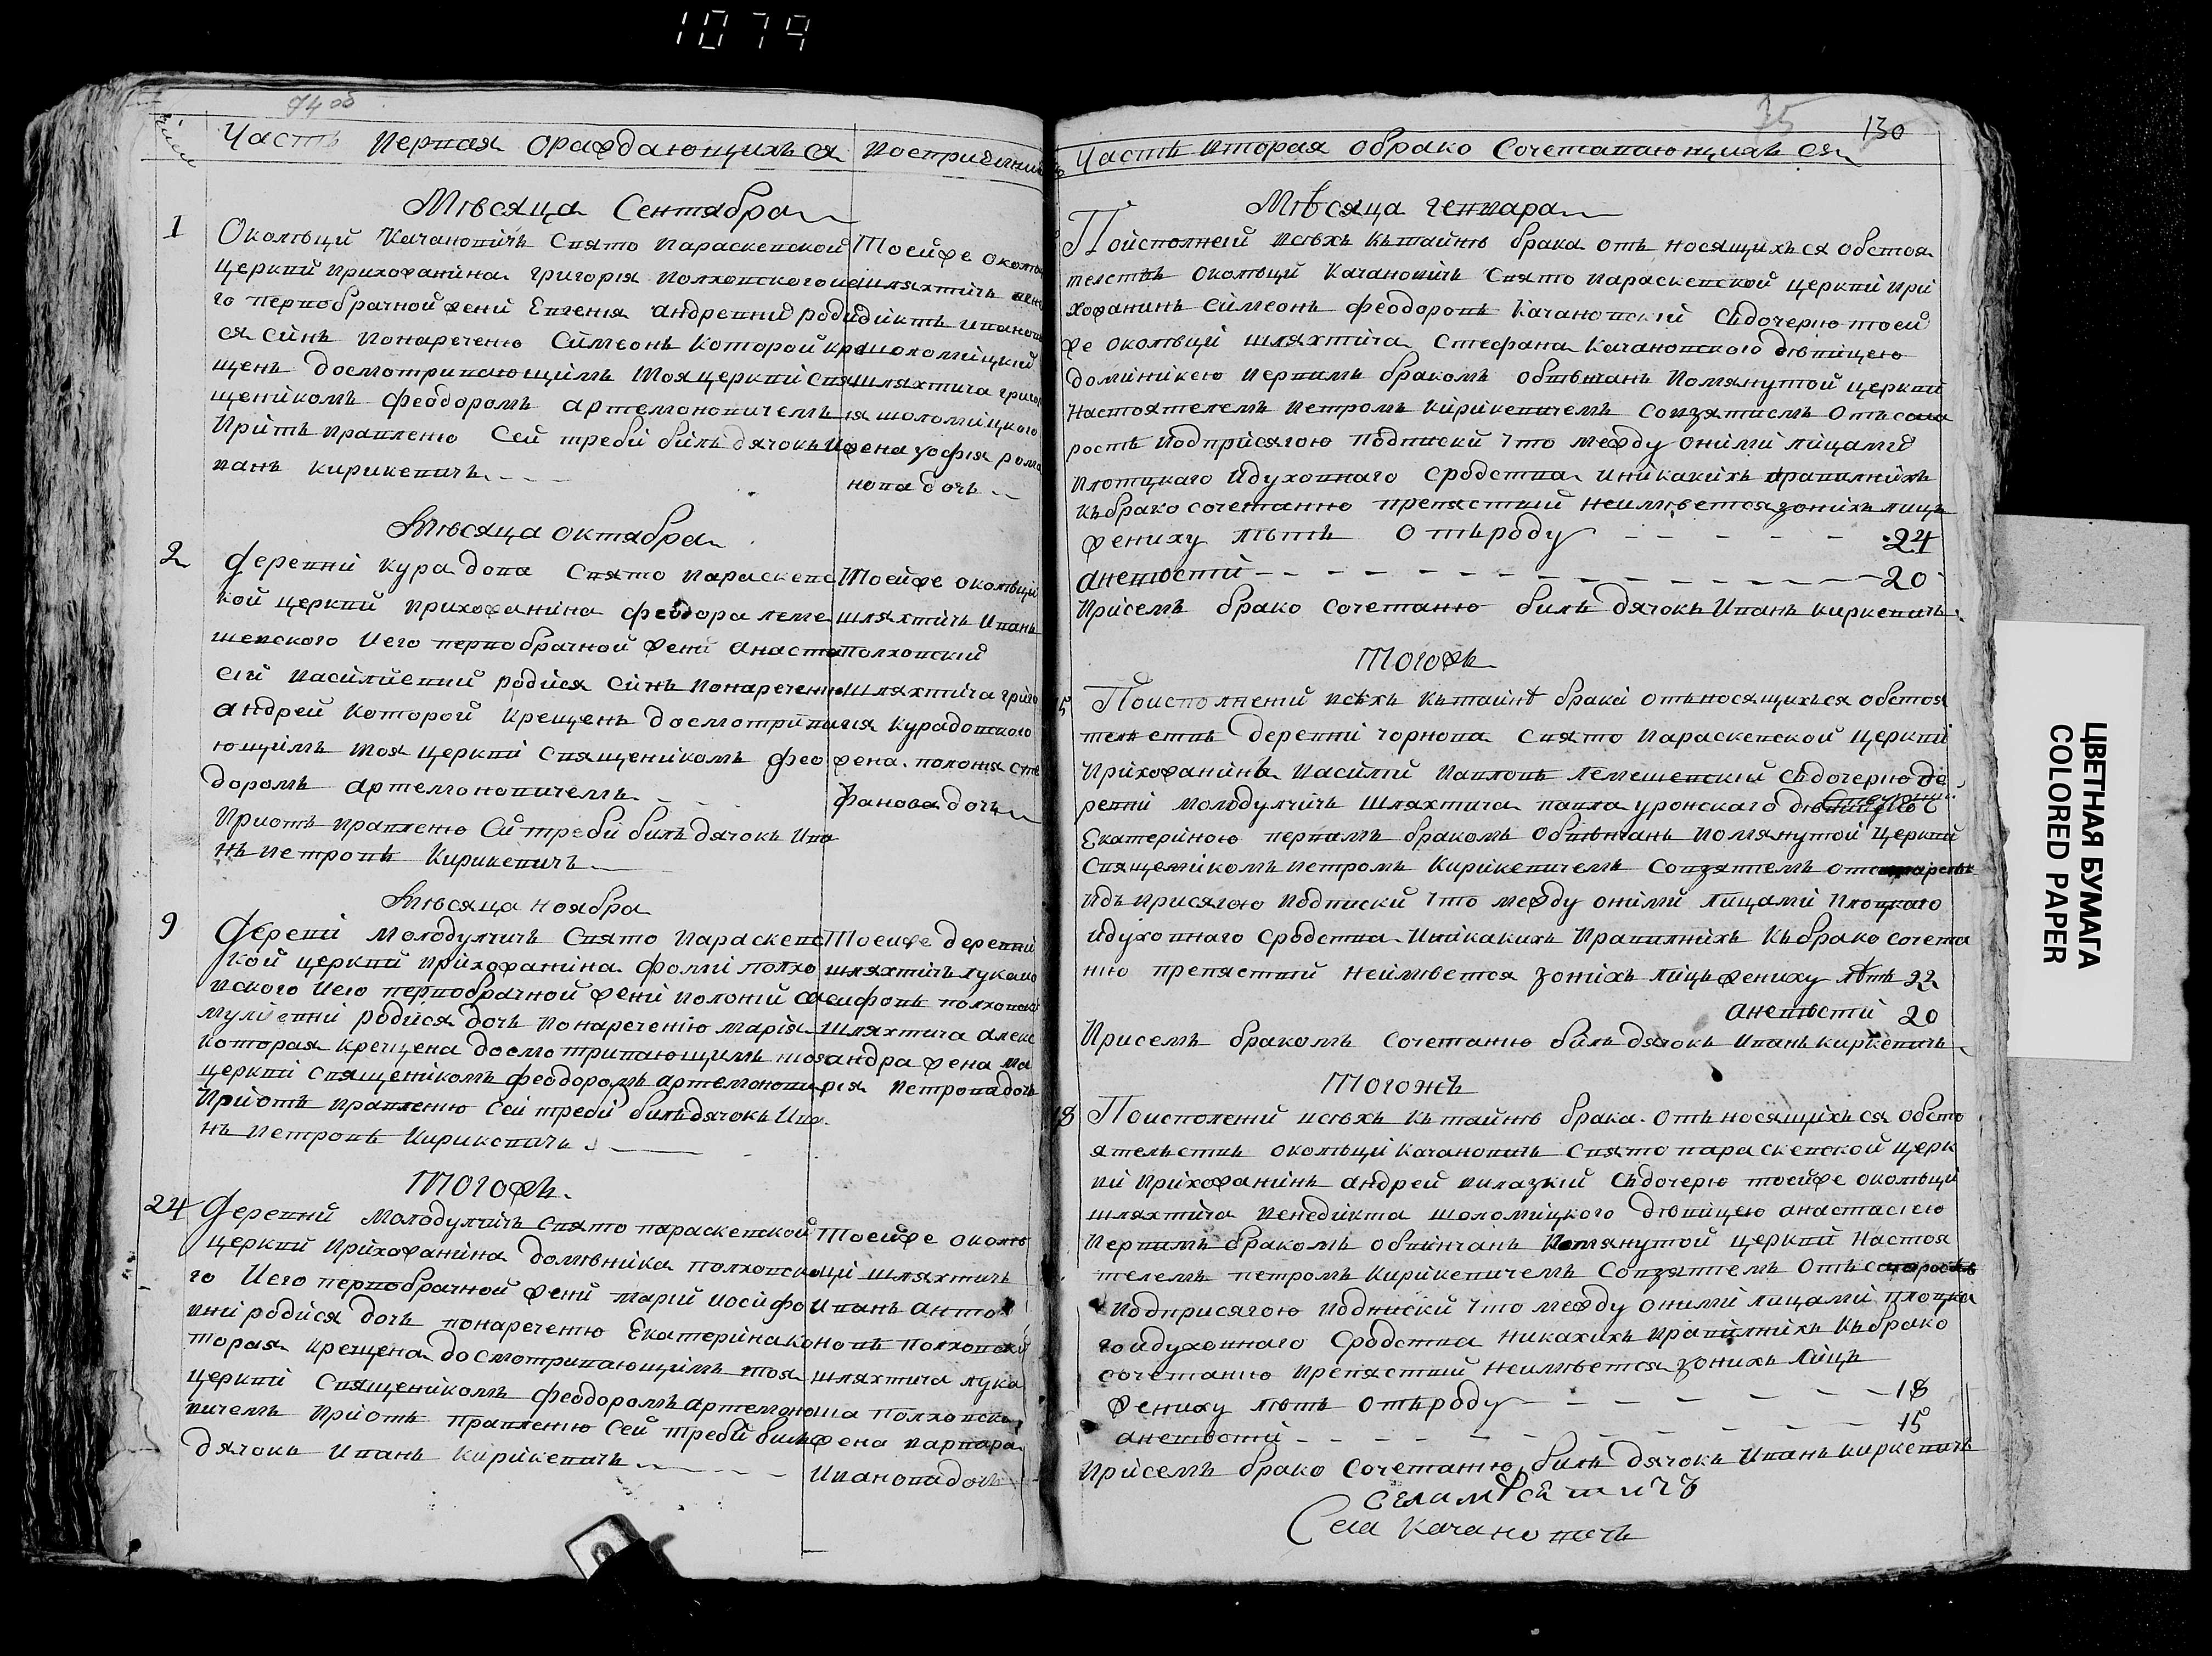 1074
74 об
числ
Часть Первая ораждающихся
Восприемник
Мѣсяца Сентябра
1
Околѣци Качановичъ Свято параскевской
церкви прихожанина григорія полховского ие
го первобрачной жени Евгенія андревни роди
ся синъ понаречению Симеонъ Которой кре
щенъ досмотривающимъ тоя церкви свя
щеникомъ феодоромъ артемоновичемъ
При отъправлению Сей треби билъ дячокъ И
ванъ кирикевичъ
Тоейже околѣ
шляхтичъ вене
диктъ ивановъ
шоломицкий
шляхтича григор
ія шоломицкого
жена зофія рома
нова дочь
Мѣсяца октябра
2
Деревни курадова Свято параскевс
кой церкви прихожанина феодора леме
шевского Иего первобрачной жени анаста
сіи василиевни родися синъ понаречению
андрей Которой крещенъ досмотрива
ющимъ тоя церкви Священикомъ фео
доромъ артемоновичемъ
Приотъправлению Сій треби билъ дячокъ Ива
нъ петровъ Кирикевичъ
Тоейже околѣци
шляхтичъ Иванъ
полховский
шляхтича григо
рия курадовского
жена полонія сте
фанова дочь
Мѣсяца ноября
9
Деревні Молодулчичъ Свято параскевс
кой церкви прихожанина фоми полхо
вского Иего первобрачной жени полонии са
мулиевни родися дочъ понаречению марія
Которая крещена досмотривающимъ тоя
церкви священикомъ феодоромъ артемонови
Приотъ правлению Сей треби билъ дячокъ Ива
нъ Петровъ Кирикевичъ
Тоейже деревни
шляхтичъ лука ио
сифовъ полховский
шляхтича алекс
андра жена ма
рія петрова дочь
Тогожъ
24
Деревни Молодулчичъ свято параскевской
церкви прихожанина домѣника полховско
го Иего первобрачной жени марии иосифо
вни родися дочъ понаречению Екатерина ко
торая крещена досмотривающимъ тоя
церкви Священикомъ феодоромъ артемоно
вичемъ Приотъ правлению Сей треби билъ
дячокъ Иванъ Кирикевичъ
Тоейже околѣ
ци шляхтичъ
Иванъ анто
новъ полховский
шляхтича лука
ша полховска
жена варвара
Иванова дочь
75
130
Часть вторая обрако Сочетавающихъ ся
Мѣсяца генвара
Поисполнеий всѣхъ къ тайнѣ брака отъ носящихъся обстоя
телствъ околѣци Качановичъ Свято параскевской церкви при
хожанинъ Симеонъ феодоровъ Качановский съдочерию тоей
же околѣци шляхтича Стефана Качановского дѣвицею
доминикею первимъ бракомъ обвѣнчанъ помянутой церкви
Настоятелемъ петромъ Кирикевичемъ Совзятиемъ отъ ста
ростъ подприсягою подписки что между оними лицами
плотцкаго идуховнаго сродства иникакихъ правилнихъ
къбрако сочетанию препястий неимѣется зонихъ лицъ
жениху лѣтъ отъроду 24
аневѣсти 20
Присемъ брако сочетанию билъ дячокъ Иванъ киркевичъ
Тогожъ
15
Поисполнений всѣхъ къ тайнѣ браки отъносящихъся обстоя
телствъ деревни чорнова свято параскевской церкви
Прихожанинъ василий павловъ лемешевский съдочерию де
ревни молодулчичъ шляхтича павла уронского дѣвицею
Екатериною первимъ бракомъ обвѣнчанъ помянутой церкви
Священикомъ петромъ кирикевичемъ Совзятемъ отстаростъ
подъ присягою подписки что между оними лицами плоцкаго
идуховнаго сродства Иникакихъ правилнихъ къбрако сочета
нию препястий неимѣется зонихъ лицъ жениху лѣтъ 22
аневѣсти 20
Присемъ бракомъ сочетанию билъ дячокъ Иванъ киркевичъ
Тогожъ
18
Поисполений всѣхъ къ тайнѣ брака отъ носящихъ ся обсто
ятелствъ околѣци Качановичъ Свято параскевской церк
ви прихожанинъ андрей вилазкий съдочерю тоейже околѣци
шляхтича венедикта шоломицкого дѣвицею анастасіею
Первимъ бракомъ обвинчанъ помянутой церкви настоя
телемъ петромъ Кирикевичемъ Совзятемъ отъ старостъ
подприсягою подписки что между оними лицами плоцка
гоидуховнаго Сродства никахихъ правилнихъ Къбрако
сочетанию препястий неимѣется зонихъ лицъ
жениху лѣтъ отъроду 18
аневѣсти 15
Присемъ брако сочетанию билъ дячокъ Иванъ киркевичъ
Села Качановичъ
ЦВЕТНАЯ БУМАГА
COLORED PAPER